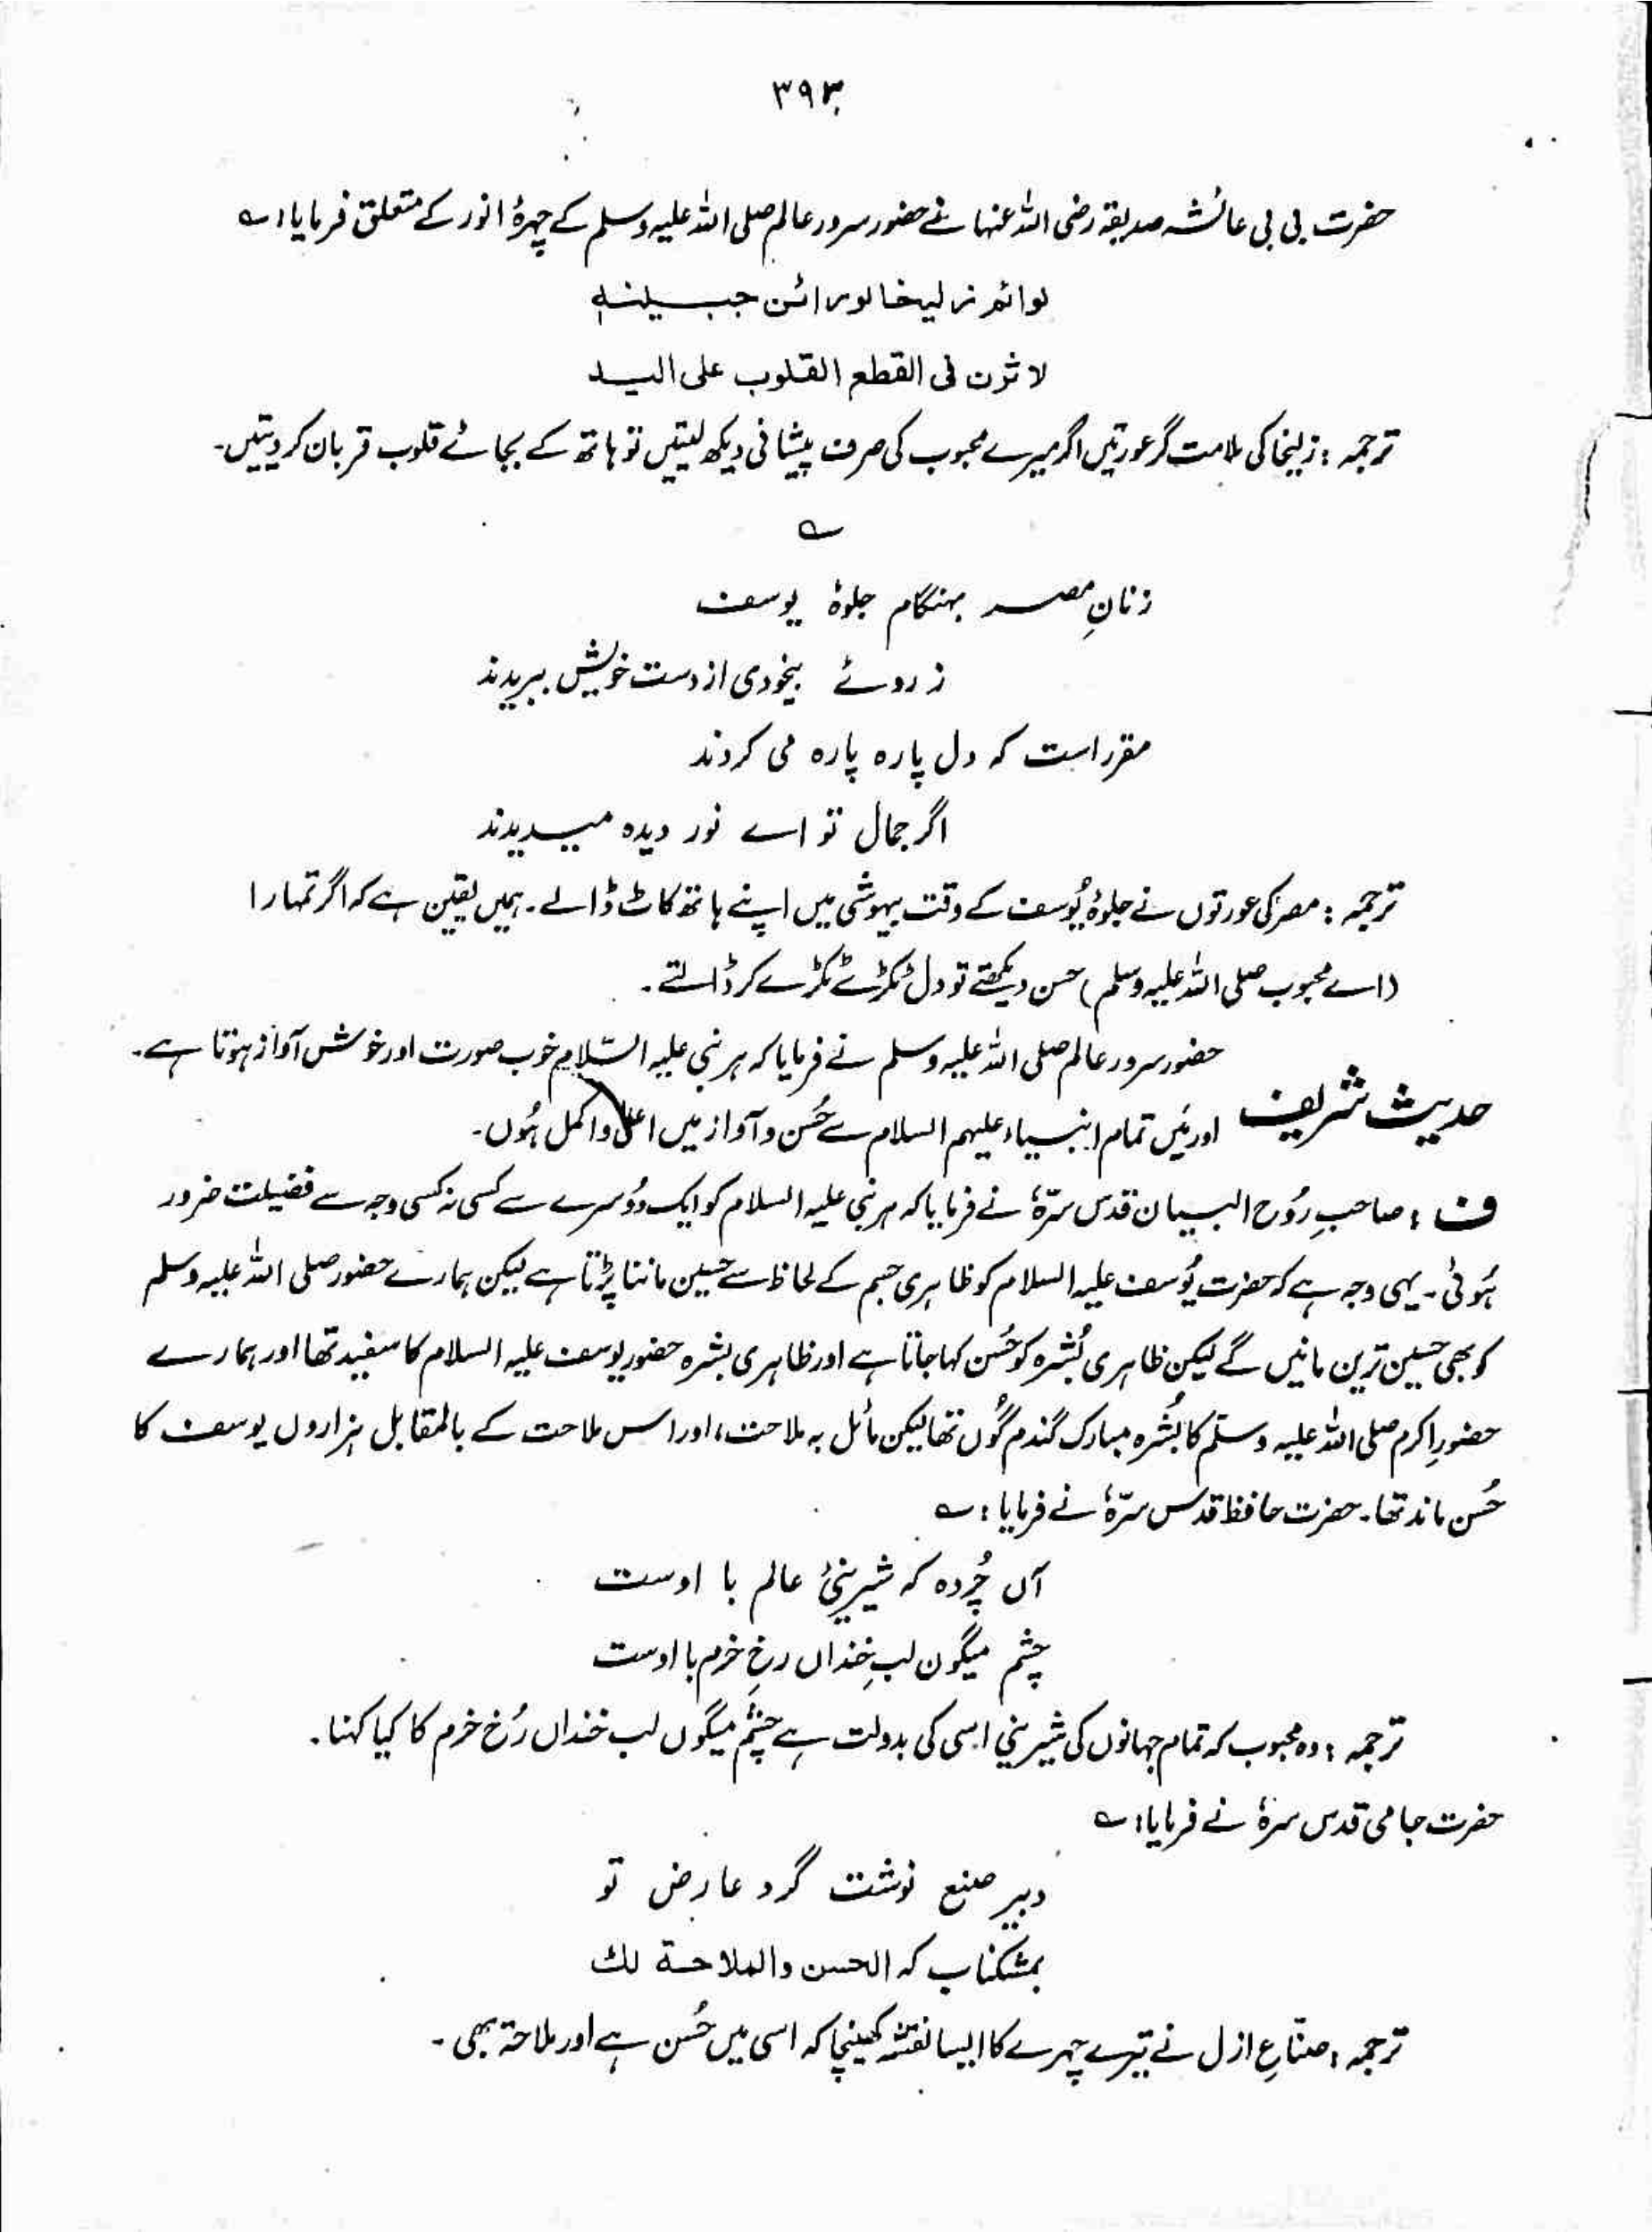 ۳۹۳
حضرت بی بی عائشہ صدیقہ رضی اللہ عنہا نے حضور سرور عالم صلی اللہ علیہ وسلم کے چہرۂ انور کے متعلق فرمایا: ؎
لوائم زلیخا لورائن جبینہ
لاثرن فی القطع القلوب علی الید
ترجمہ: زلیخا کی ملامت گر عورتیں اگر میرے محبوب کی صرف پیشانی دیکھ لیتیں تو ہاتھ کے بجائے قلوب قربان کر دیتیں۔
؎
زنانِ مصر بہنگام جلوۂ یوسف
ز روئے بیخودی از دست خویش ببریدند
مقرر است کہ دل پارہ پارہ می کردند
اگر جمال تو اے نور دیدہ میدیدند
ترجمہ: مصر کی عورتوں نے جلوۂ یُوسف کے وقت بیہوشی میں اپنے ہاتھ کاٹ ڈالے۔ ہمیں یقین ہے کہ اگر تمہارا
(اے محبوب صلی اللہ علیہ وسلم) حسن دیکھتے تو دل ٹکڑے ٹکڑے کر ڈالتے۔
حضور سرور عالم صلی اللہ علیہ وسلم نے فرمایا کہ ہر نبی علیہ السّلام خوب صورت اور خوش آواز ہوتا ہے۔
حدیث شریف
اور مَیں تمام انبیاء علیہم السلام سے حُسن و آواز میں اعلیٰ و اکمل ہُوں۔
ف: صاحبِ رُوح البیان قدس سرّہٗ نے فرمایا کہ ہر نبی علیہ السلام کو ایک دُوسرے سے کسی نہ کسی وجہ سے فضیلت ضرور
ہُوئی۔ یہی وجہ ہے کہ حضرت یُوسف علیہ السلام کو ظاہری جسم کے لحاظ سے حسین ماننا پڑتا ہے لیکن ہمارے حضور صلی اللہ علیہ وسلم
کو بھی حسین ترین مانیں گے لیکن ظاہری بُشرہ کو حُسن کہا جاتا ہے اور ظاہری بشرہ حضور یوسف علیہ السلام کا سفید تھا اور ہمارے
حضورِ اکرم صلی اللہ علیہ وسلّم کا بُشرہ مبارک گندم گُوں تھا لیکن مائل بہ ملاحت، اور اس ملاحت کے بالمقابل ہزاروں یوسف کا
حُسن ماند تھا۔ حضرت حافظ قدس سرّہٗ نے فرمایا: ؎
آں چُردہ کہ شیرینیٔ عالم با اوست
چشم میگون لبِ خنداں رخِ خرم با اوست
ترجمہ: وہ محبوب کہ تمام جہانوں کی شیرینی اسی کی بدولت ہے چشم میگوں لب خنداں رُخ خرم کا کیا کہنا۔
حضرت جامی قدس سرہٗ نے فرمایا: ؎
دبیر صنع نوشت گرد عارض تو
بمشکناب کہ الحسن والملاحۃ لک
ترجمہ: صنّاعِ ازل نے تیرے چہرے کا ایسا نقشہ کھینچا کہ اسی میں حُسن ہے اور ملاحۃ بھی۔